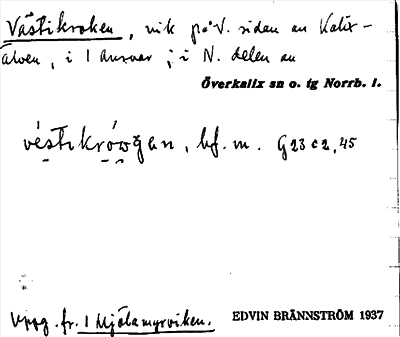 Västikroken, vik på V. sidan av Kalix-
älven, i 1 Ansvar; i N. delen av
Överkalix sn o. tg Norrb. l.
véstikrówgan, bf. m. G23c2,45
Uppg. fr. 1 Mjölamyrviken.
EDVIN BRÄNNSTRÖM 1937